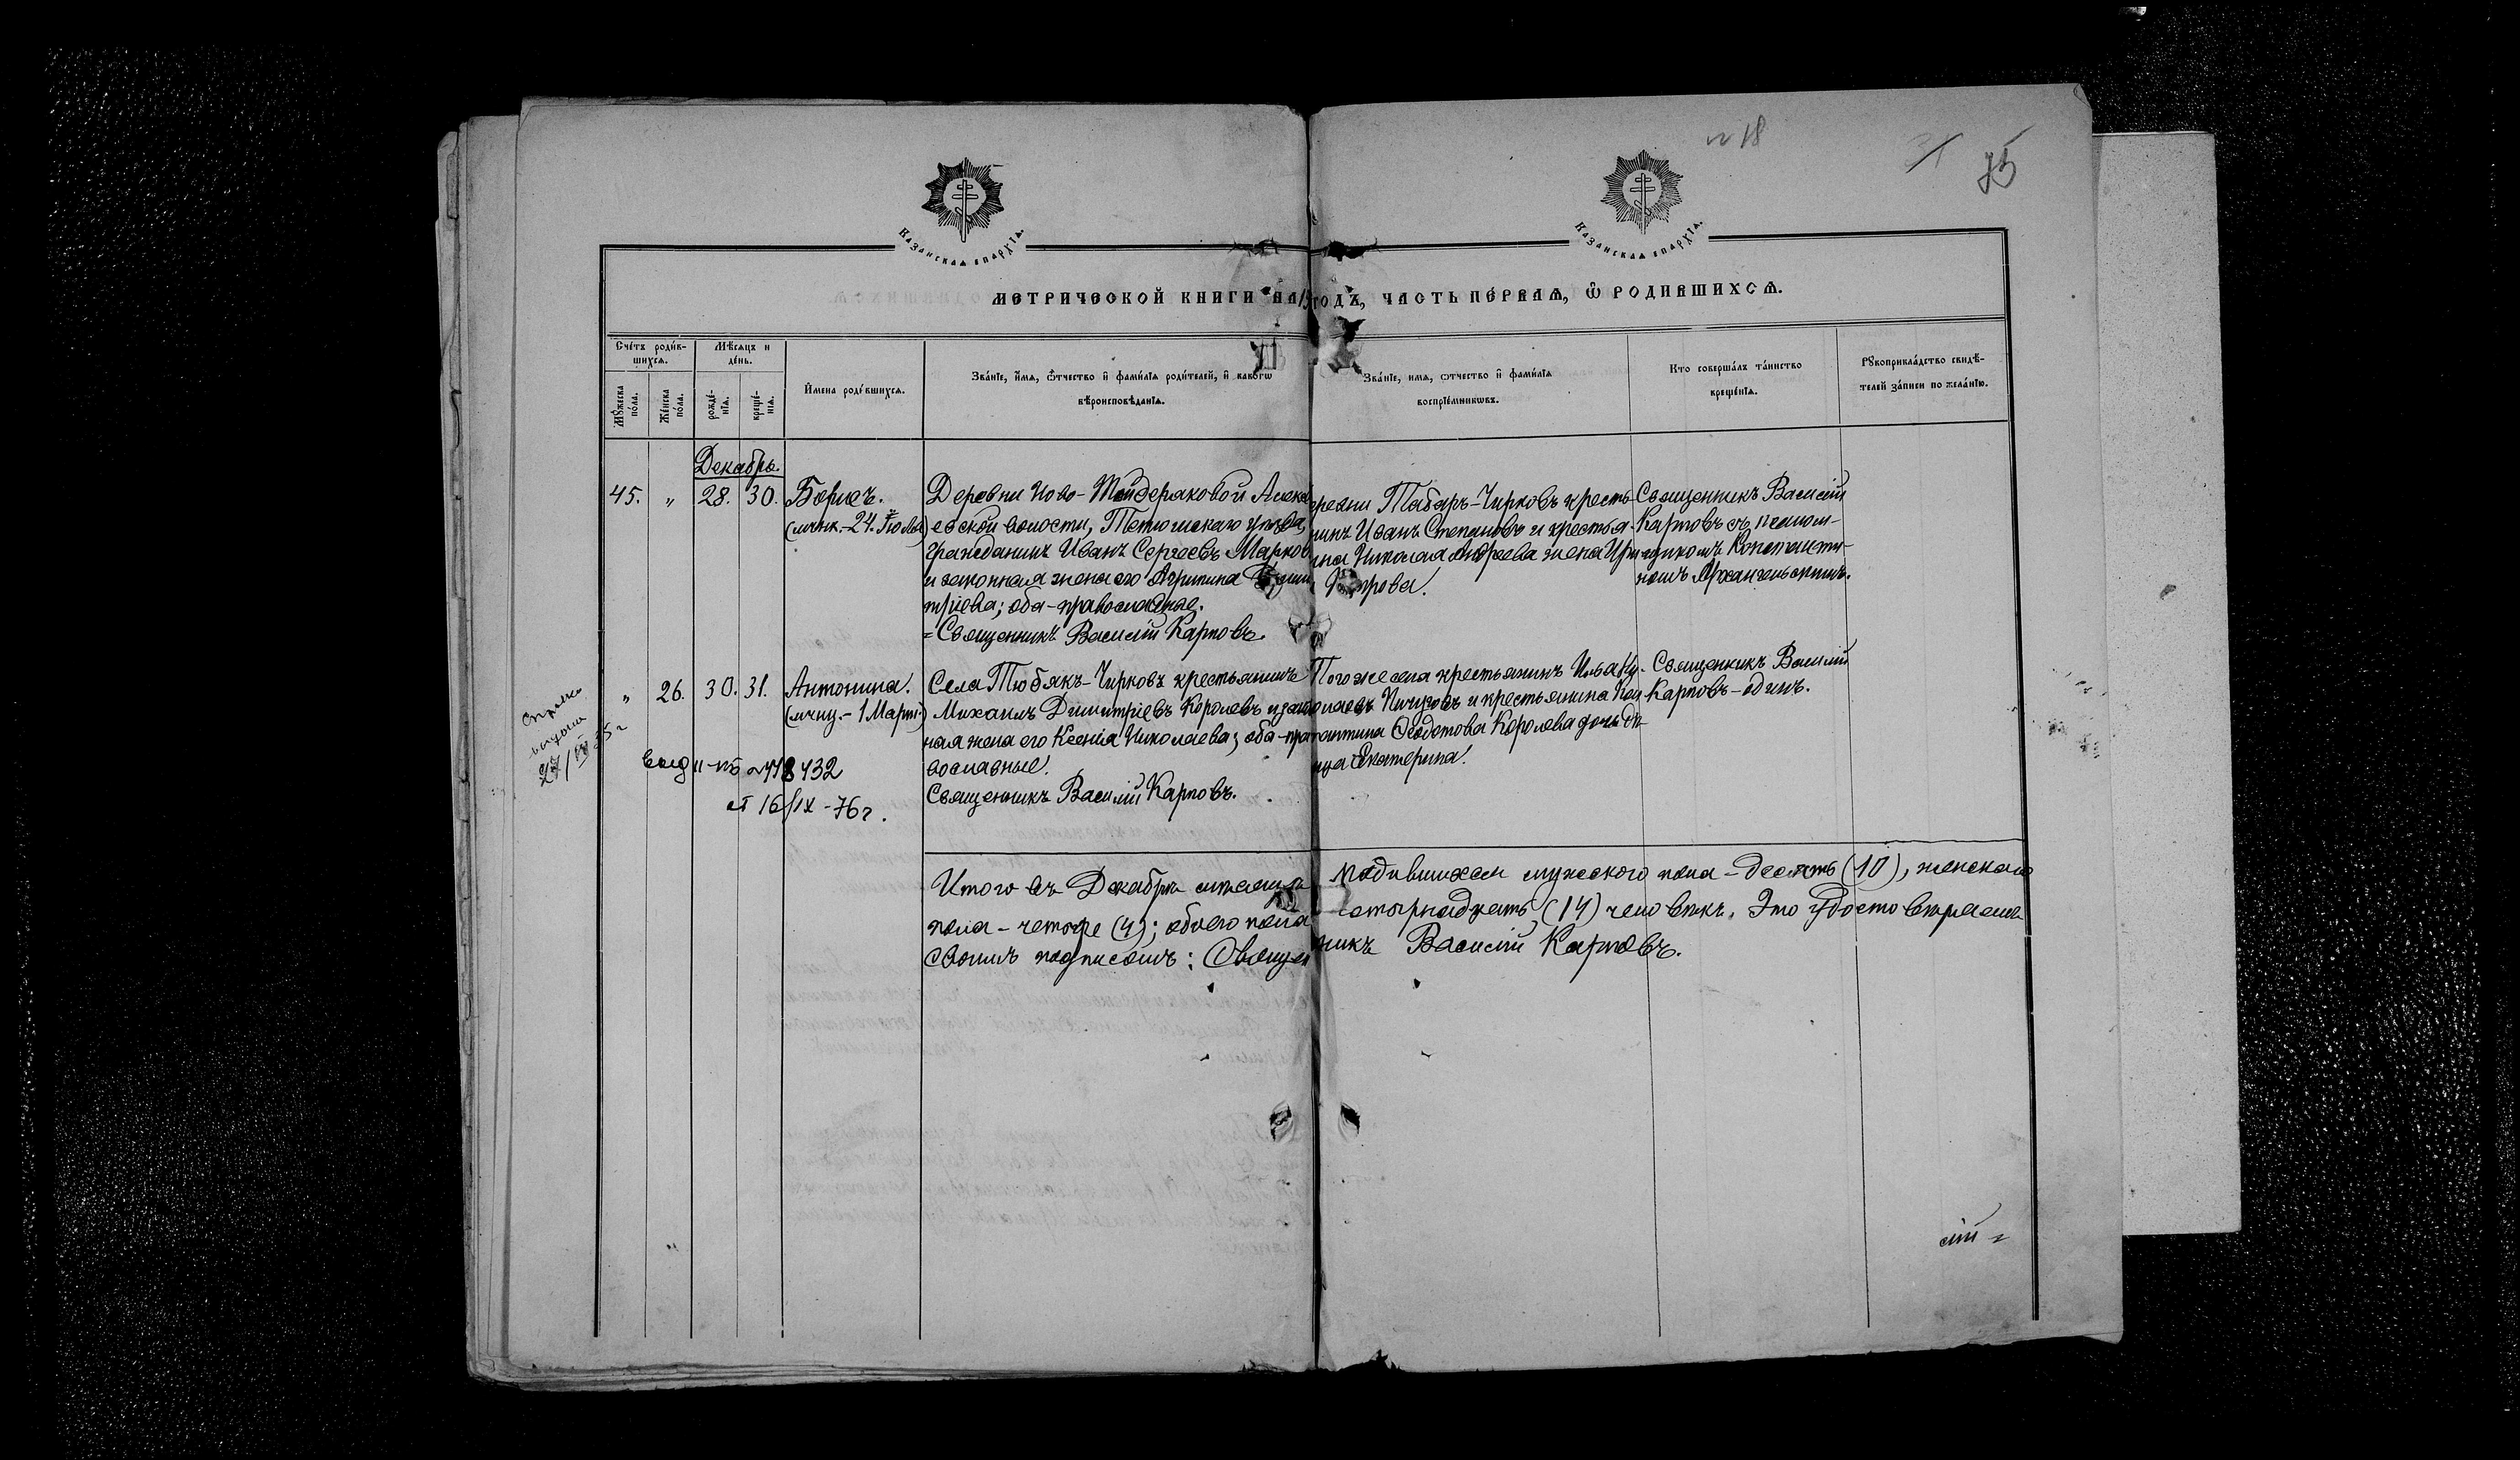 № 18
31
75
Казанская епархїя.
Казанская епархїя.
МЕТРИЧЕСКОЙ КНИГИ НА ГОДЪ, ЧАСТЬ ПЕРВАЯ, Ѡ РОДИВШИХСЯ.
Счетъ родив-
шихся.
Мѣсяцъ и
день.
Мужеска
пола.
Женска
пола.
рожде-
нїя.
креще-
нїя.
Имена родившихся.
Званїе, имя, ѡтчество и фамилїя родителей, и какогѡ
вѣроисповѣданїя.
Званїе, имя, ѡтчество и фамилїя
воспрїемникѡвъ.
Кто совершалъ таинство
крещенїя.
Рукоприкладство свидѣ-
телей записи по желанїю.
Декабрь.
45. " 28. 30. Борисъ.
(мчнк.-24. Іюля)
Деревни Ново-Тойдеряковой Алекс
евской волости, Тетюшскаго уѣзда,
гражданинъ Иванъ Сергеевъ Марков
и законная жена его Агрипина Дими
тріева; оба-православные.
=Священникъ Василій Карповъ.
еревни Табаръ-Чирковъ кресть
нинъ Иванъ Степановъ и крестья-
нина Николая Андреева жена Ири
Петрова.
Священникъ Василій
Карповъ съ псалом-
щикомъ Константи-
номъ Архангельскимъ.
" 26. 30. 31. Антонина.
(мчиц.-1 Март.)
Села Тюбякъ-Чирковъ крестьянинъ
Михаилъ Димитріевъ Королевъ и закон
ная жена его Ксенія Николаева; оба-пра
вославные.
Священникъ Василій Карповъ.
Того же села крестьянинъ Илья Ни-
колаевъ Пичуговъ и крестьянина Кон
стантина Ѳеодотова Королева дочь дѣ
вица Екатерина.
Священникъ Василій
Карповъ-одинъ.
Справка
выдана
27/IV 35 г
выд
432
от 16/IX-76 г.
Итого въ Декабрѣ мѣсяцѣ родившихся мужескаго пола-десять (10), женскаго
пола-четыре (4); обоего пола четырнадцать (14) человѣкъ. Это удостовѣряемъ
своимъ подписомъ: Священникъ Василій Карповъ.
сій